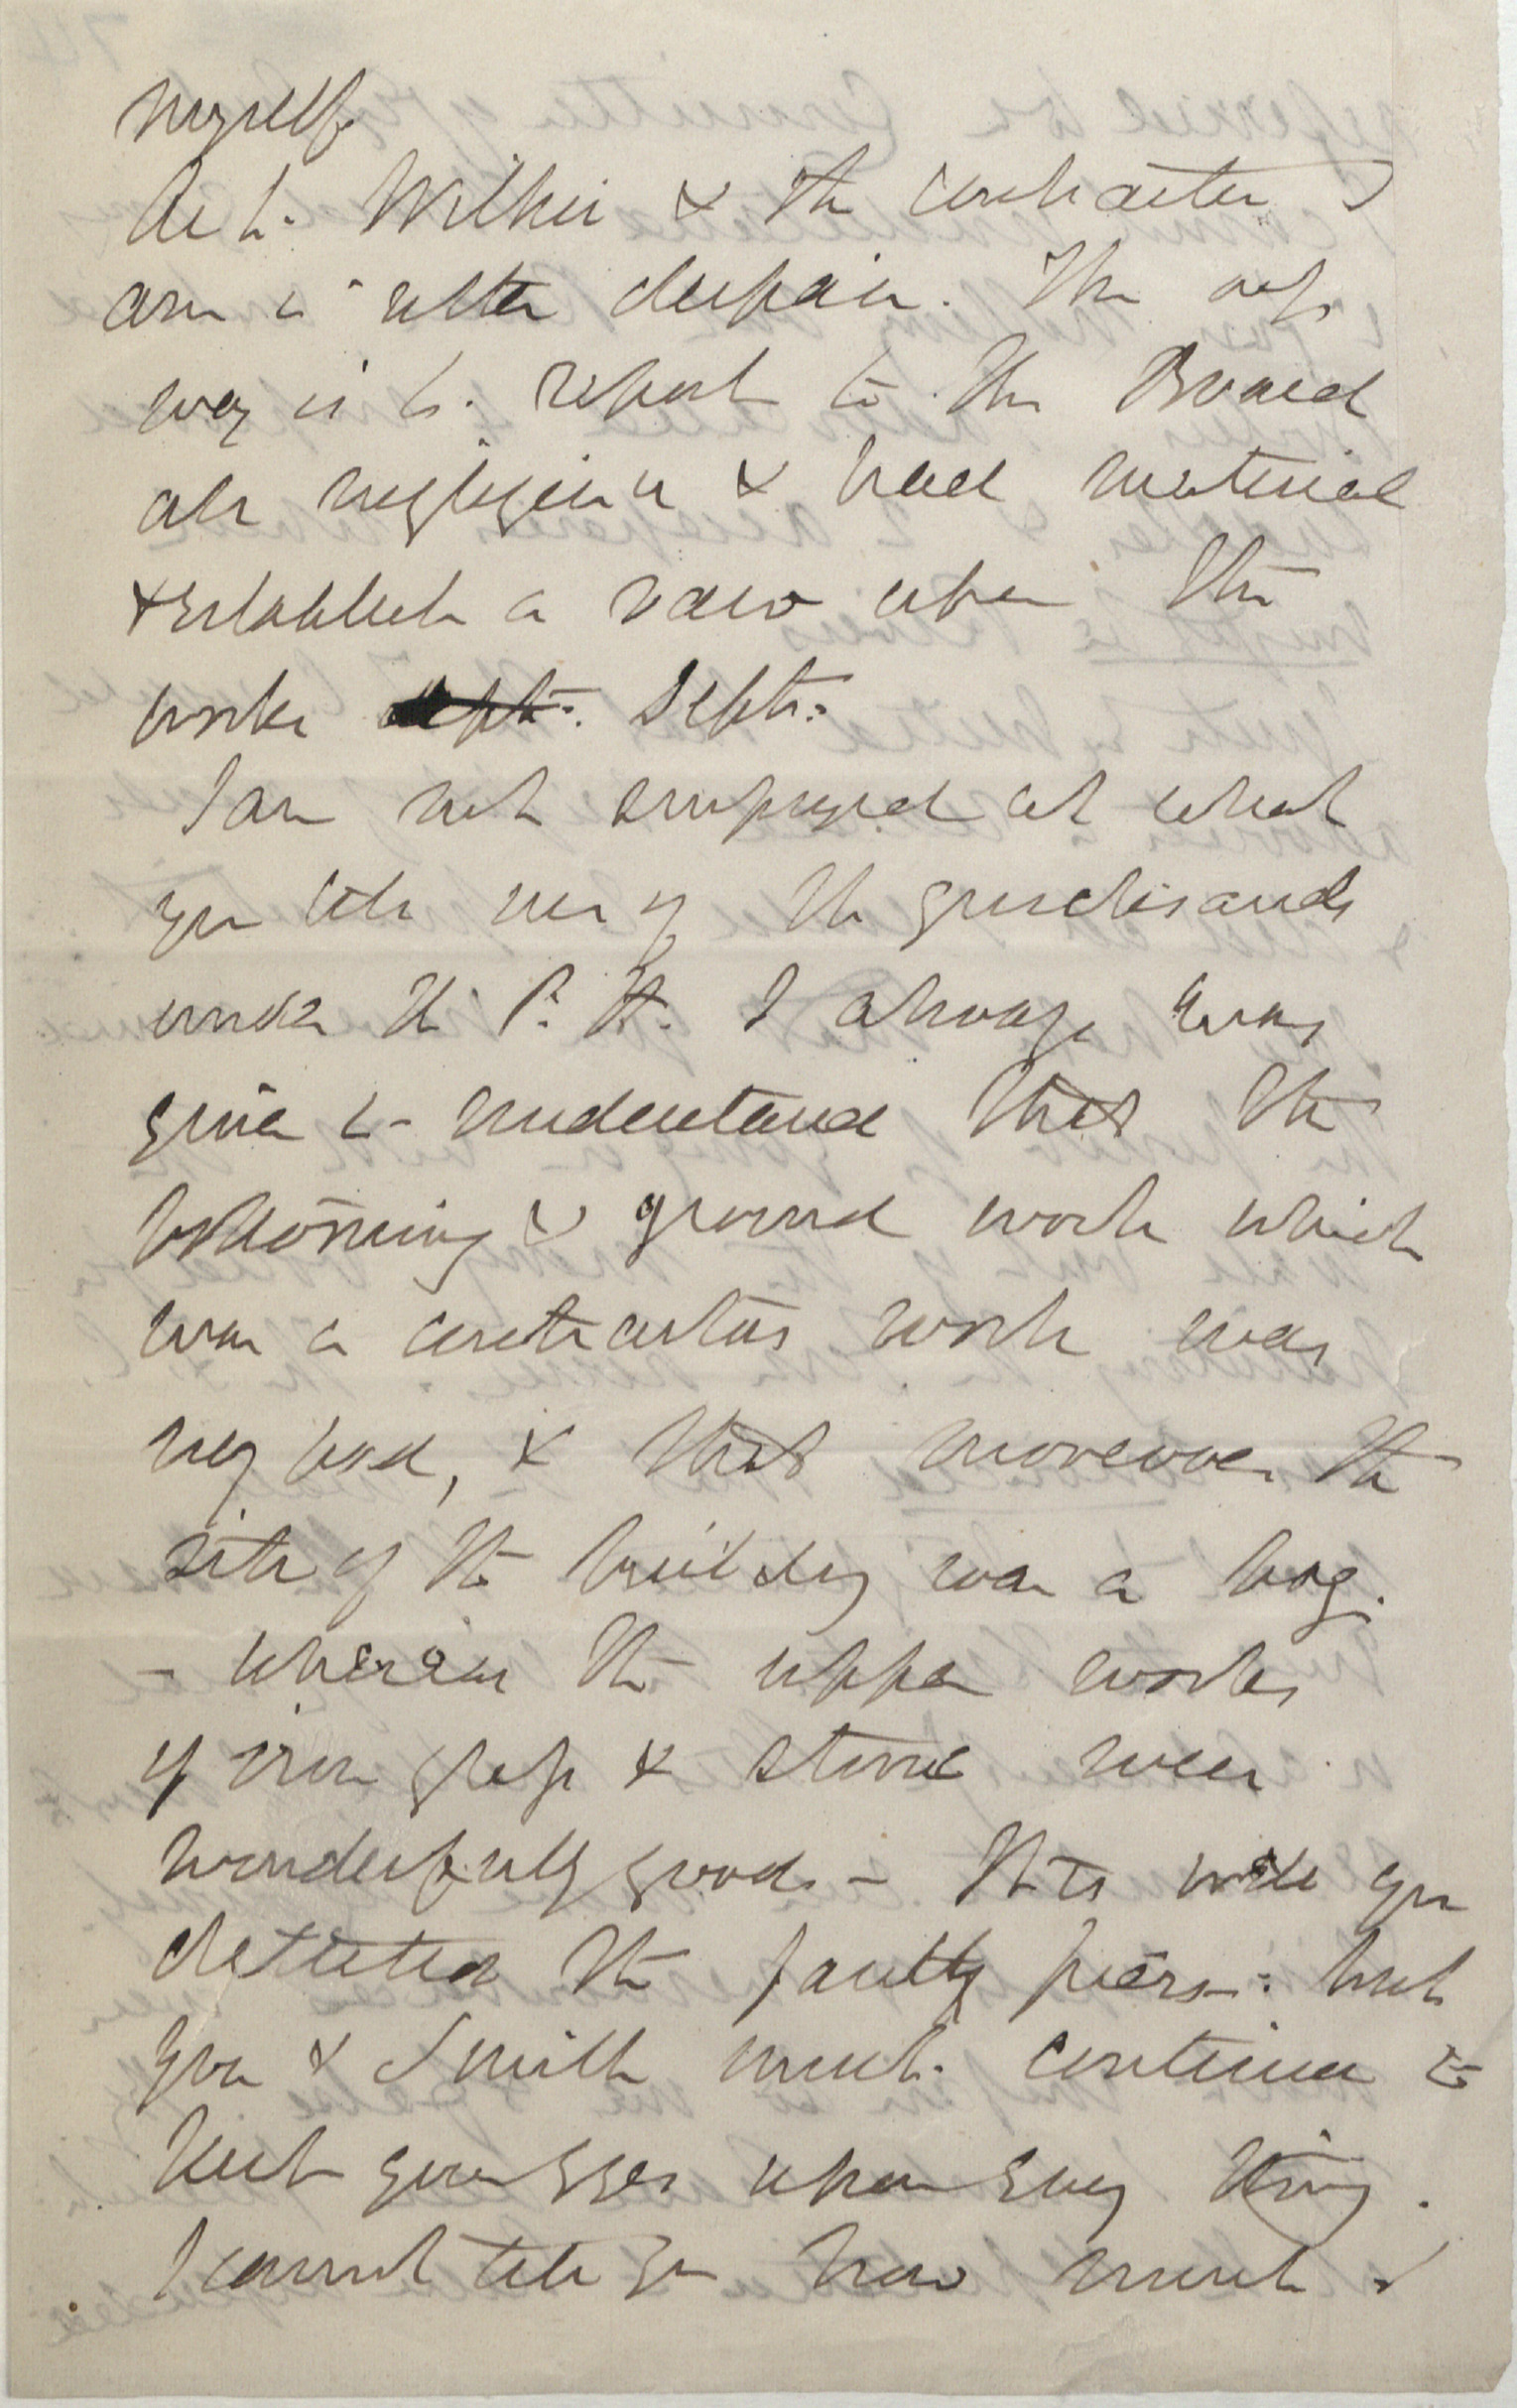 myself.
As to Wilkie & the contractor I
am in utter despair. The only
way is to report to the Board
all negligence & bad material
& establish a raw upon the
works <del>dept.</del> Dept.
I am not surprised at what
you tell me of the groundsands
under the P. H. I always was
given to understand that the
bottoming & ground work which
was a contractors work was
very bad, & that moreover the
site of the building was a bog.
- whereas the upper works
of iron glass & stone were
wonderfully good - Its well you
detected the faulty piers -: but
you & Smith must continue to
keep your eyes upon every thing.
I cannot tell you how much I